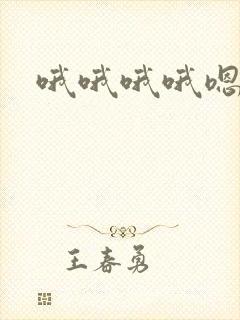 哦哦哦哦嗯
王春勇